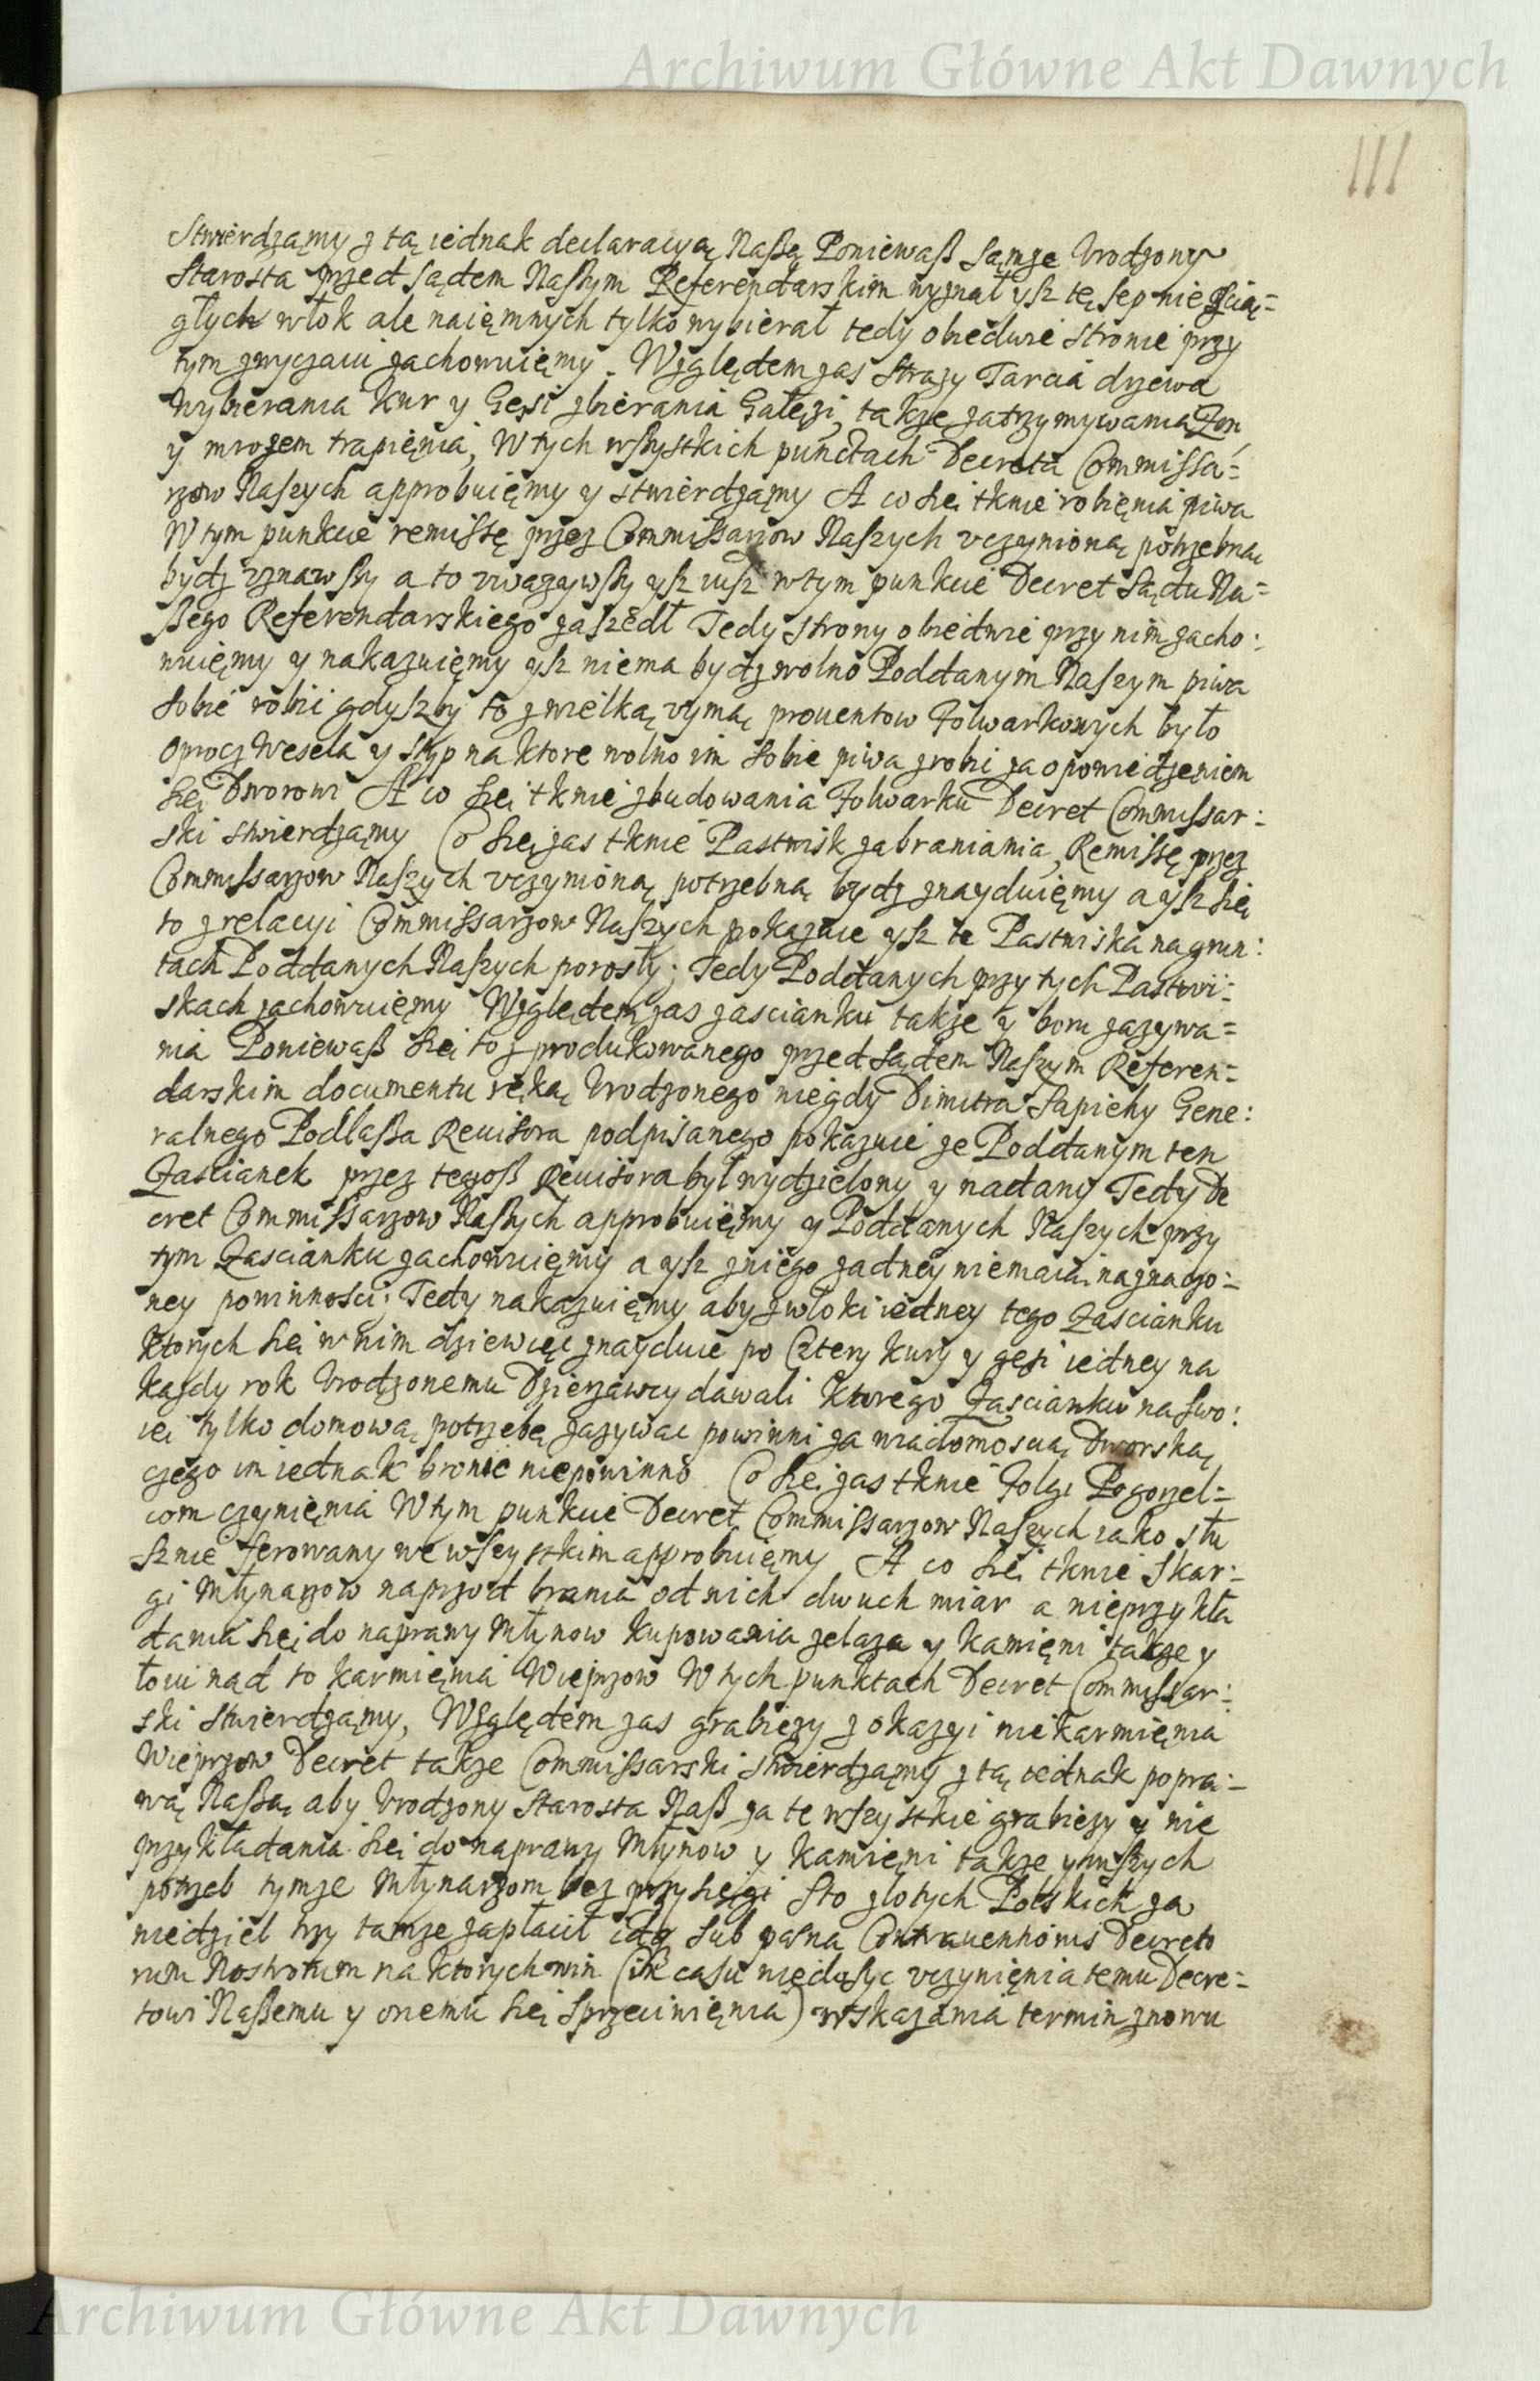 Archiwum Główne Akt Dawnych
111
Stwierdzamy z tą iednak declaracyą Naßą Poniewaß sąmże Vrodzony
Starosta przed sądem Naszym Referendarskim wyznał ysz tę sep nie z cią=
głych włok ale naięmnych tylko wybierał tedy obiedwie stronie przy
tym zwyczaiu zachowuięmy. Względem zas Straży Tarcia drzewa
Wybierania Kur y Gęsi zbierania Gałęzi, także zatrzymywania Zon
y mrozem trapięnia, W tych wszystkich punctach Decreta Commissa=
rzow Naszych approbuięmy y stwierdzamy A co się tknie robięnia piwa
W tym punkcie remissę przez Commissarzow Naszych vczynioną potrzebną
bydz vznawszy a to vwazywszy ysz iusz w tym punkcie Decret Sądu Na=
ßego Referendarskiego zaszedł Tedy strony obiedwie przy nim zacho:
wuięmy y nakazuięmy ysz niema bydz wolno Poddanym Naszym piwa
sobie robić gdyszby to z wielką vymą prouentow Folwarkowych było
oprocz Wesela y styp na ktore wolno im sobie piwa zrobić za opowiedzęniem
się Dworowi A co się tknie zbudowania Folwarku Decret Commissar:
ski stwierdzamy Co się zas tknie Pastwisk zabraniania, Remissę przez
Commissarzow Naszych vczynioną potrzebną bydz znayduięmy a ysz się
to z relacyi Commissarzow Naszych pokazuie ysz te Pastwiska na grun:
tach Poddanych Naszych porosły; Tedy Poddanych przy tych Pastwi:
skach zachowuięmy Względem zas zascianku także y boru zazywa=
nia Poniewaß się to z produkowanego przed sądem Naszym Referen=
darskim documentu ręką Vrodzonego niegdy Dimitra Sapiehy Gene:
ralnego Podlaßa Reuisora podpisanego pokazuie że Poddanym ten
Zascianek przez tegoß Reuisora był wydzielony y nadany Tedy De
cret Commissarzow Naszych approbuięmy y Poddanych Naszych przy
tym Zascianku zachowuięmy a ysz z niego zadney niemaią naznaczo:
ney powinnosci; Tedy nakazuięmy aby z włoki iedney tego Zascianku
ktorych się w nim dziewięć znayduie po Cztery kury y gęsi iedney na
każdy rok Vrodzonemu Dzierzawcy dawali ktorego Zascianku na swo:
ię tylko domową potrzebę zazywać powinni za wiadomoscią Dworską
czego im iednak bronić niepowinno Co się zas tknie Folgi Pogorzel=
com czynięnia W tym punkcie Decret Commissarzow Naszych iako słu
sznie ferowany we wszystkim approbuięmy A co się tknie skar:
gi Młynarzow naprzod brania od nich dwuch miar a nieprzykła
dania się do naprawy Młynow kupowania żelaza y kamięni także y
łoiu nad to karmięnia Wieprzow W tych punktach Decret Commissar:
ski stwierdzamy, Względem zas grabieży z okazyi niekarmięnia
Wieprzow Decret także Commissarski stwierdzamy z tą iednak popra:
wą Naßą aby Vrodzony Starosta Naß za te wszystkie grabieży y nie
przykładania się do naprawy Młynow y kamięni także ynnszych
potrzeb tymże Młynarzom bez przysięgi sto złotych Polskich za
niedziel trzy tamże zapłacił idq sub pœna Contrauentionis Decreto
rum Nostrorum na ktorych win (in casu niedosyć vczynięnia temu Decre=
towi Naßemu y onemu się sprzeciwięnia) wskazania termin znowu
Archiwum Główne Akt Dawnych